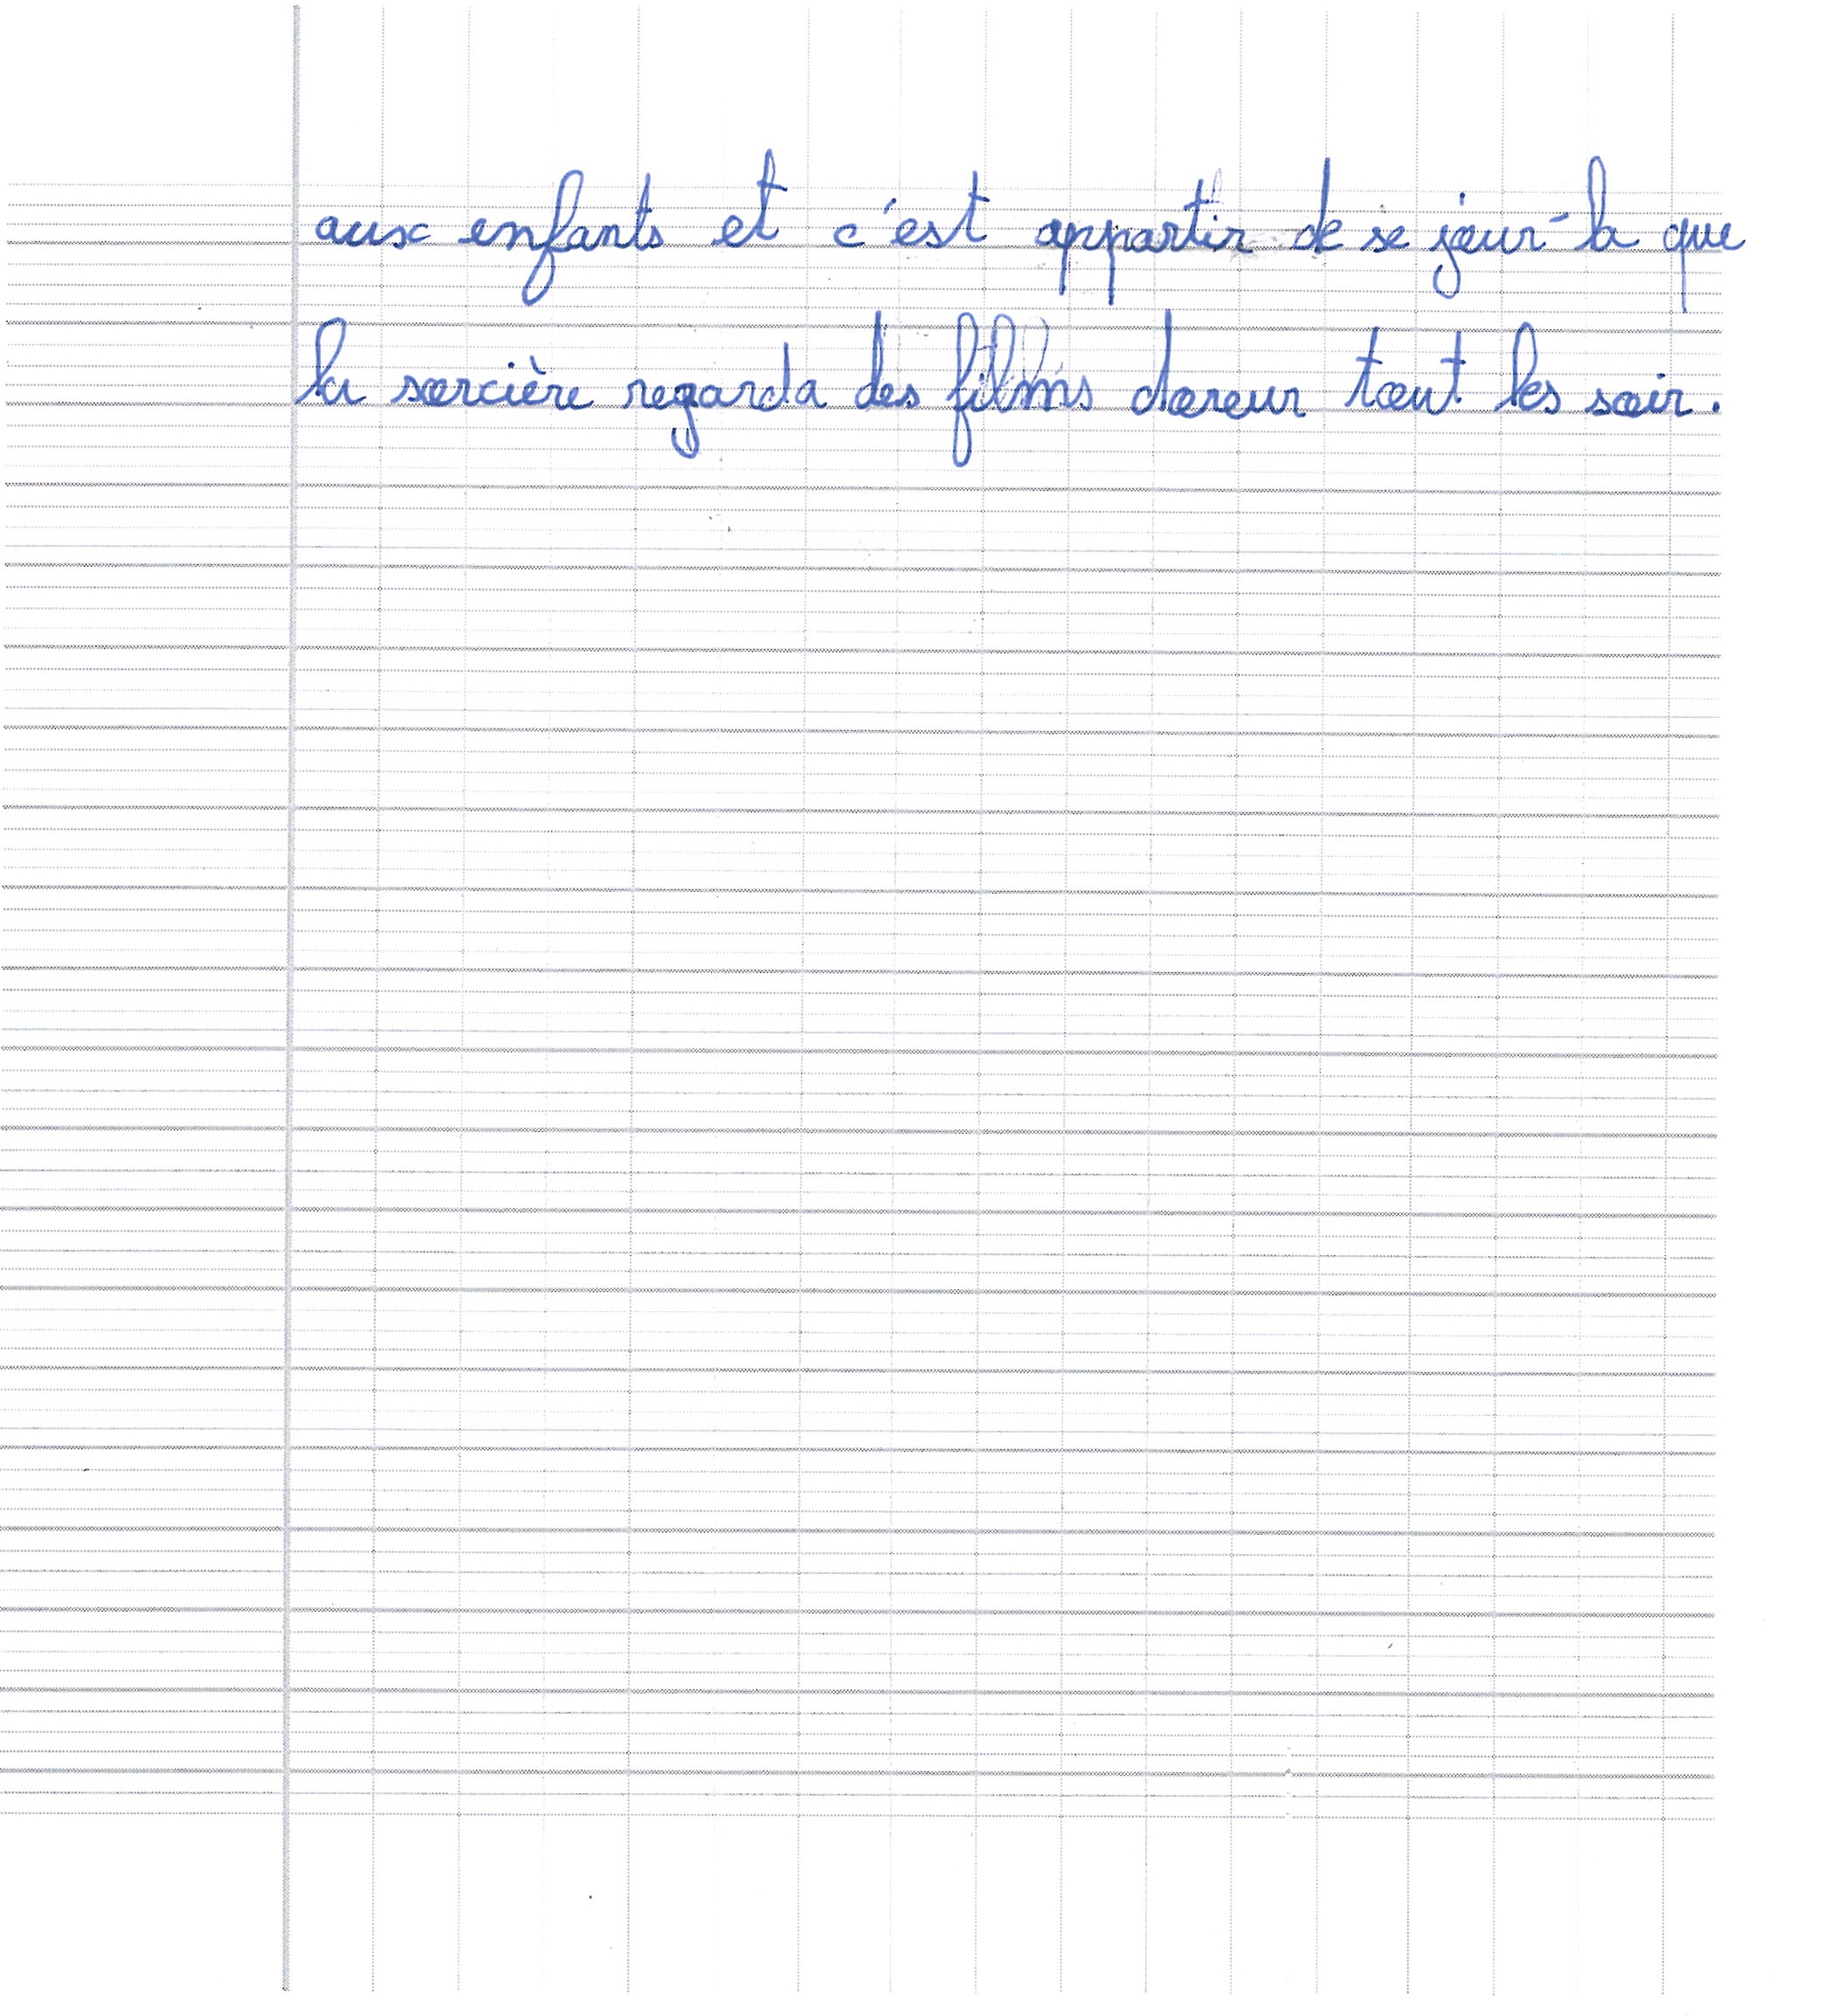 aux enfants et c'est appartir de se jour-la que
la sorcière regarda des films doreur tout les soir.